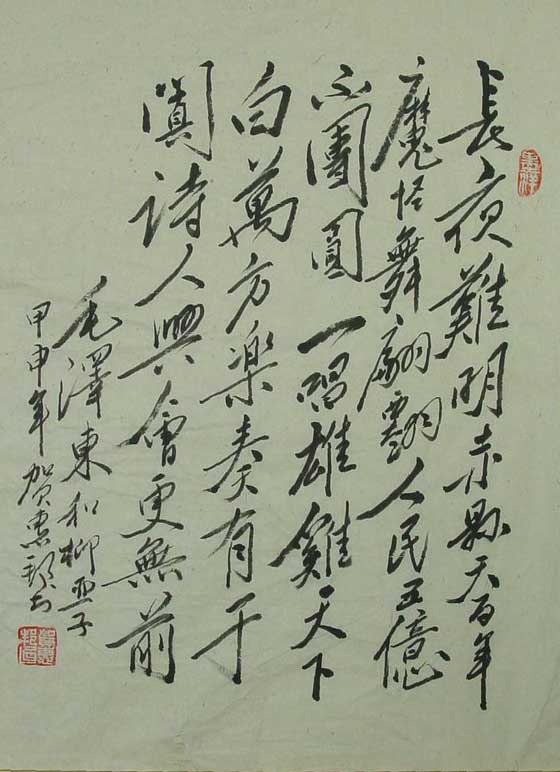 長夜難明赤縣天百年
魔怪舞翩人民五億
不團圓一唱雄雞天下
白萬方樂奏有于
闐詩人興會更無前
毛澤東和柳亞子
甲申年賀惠邦书